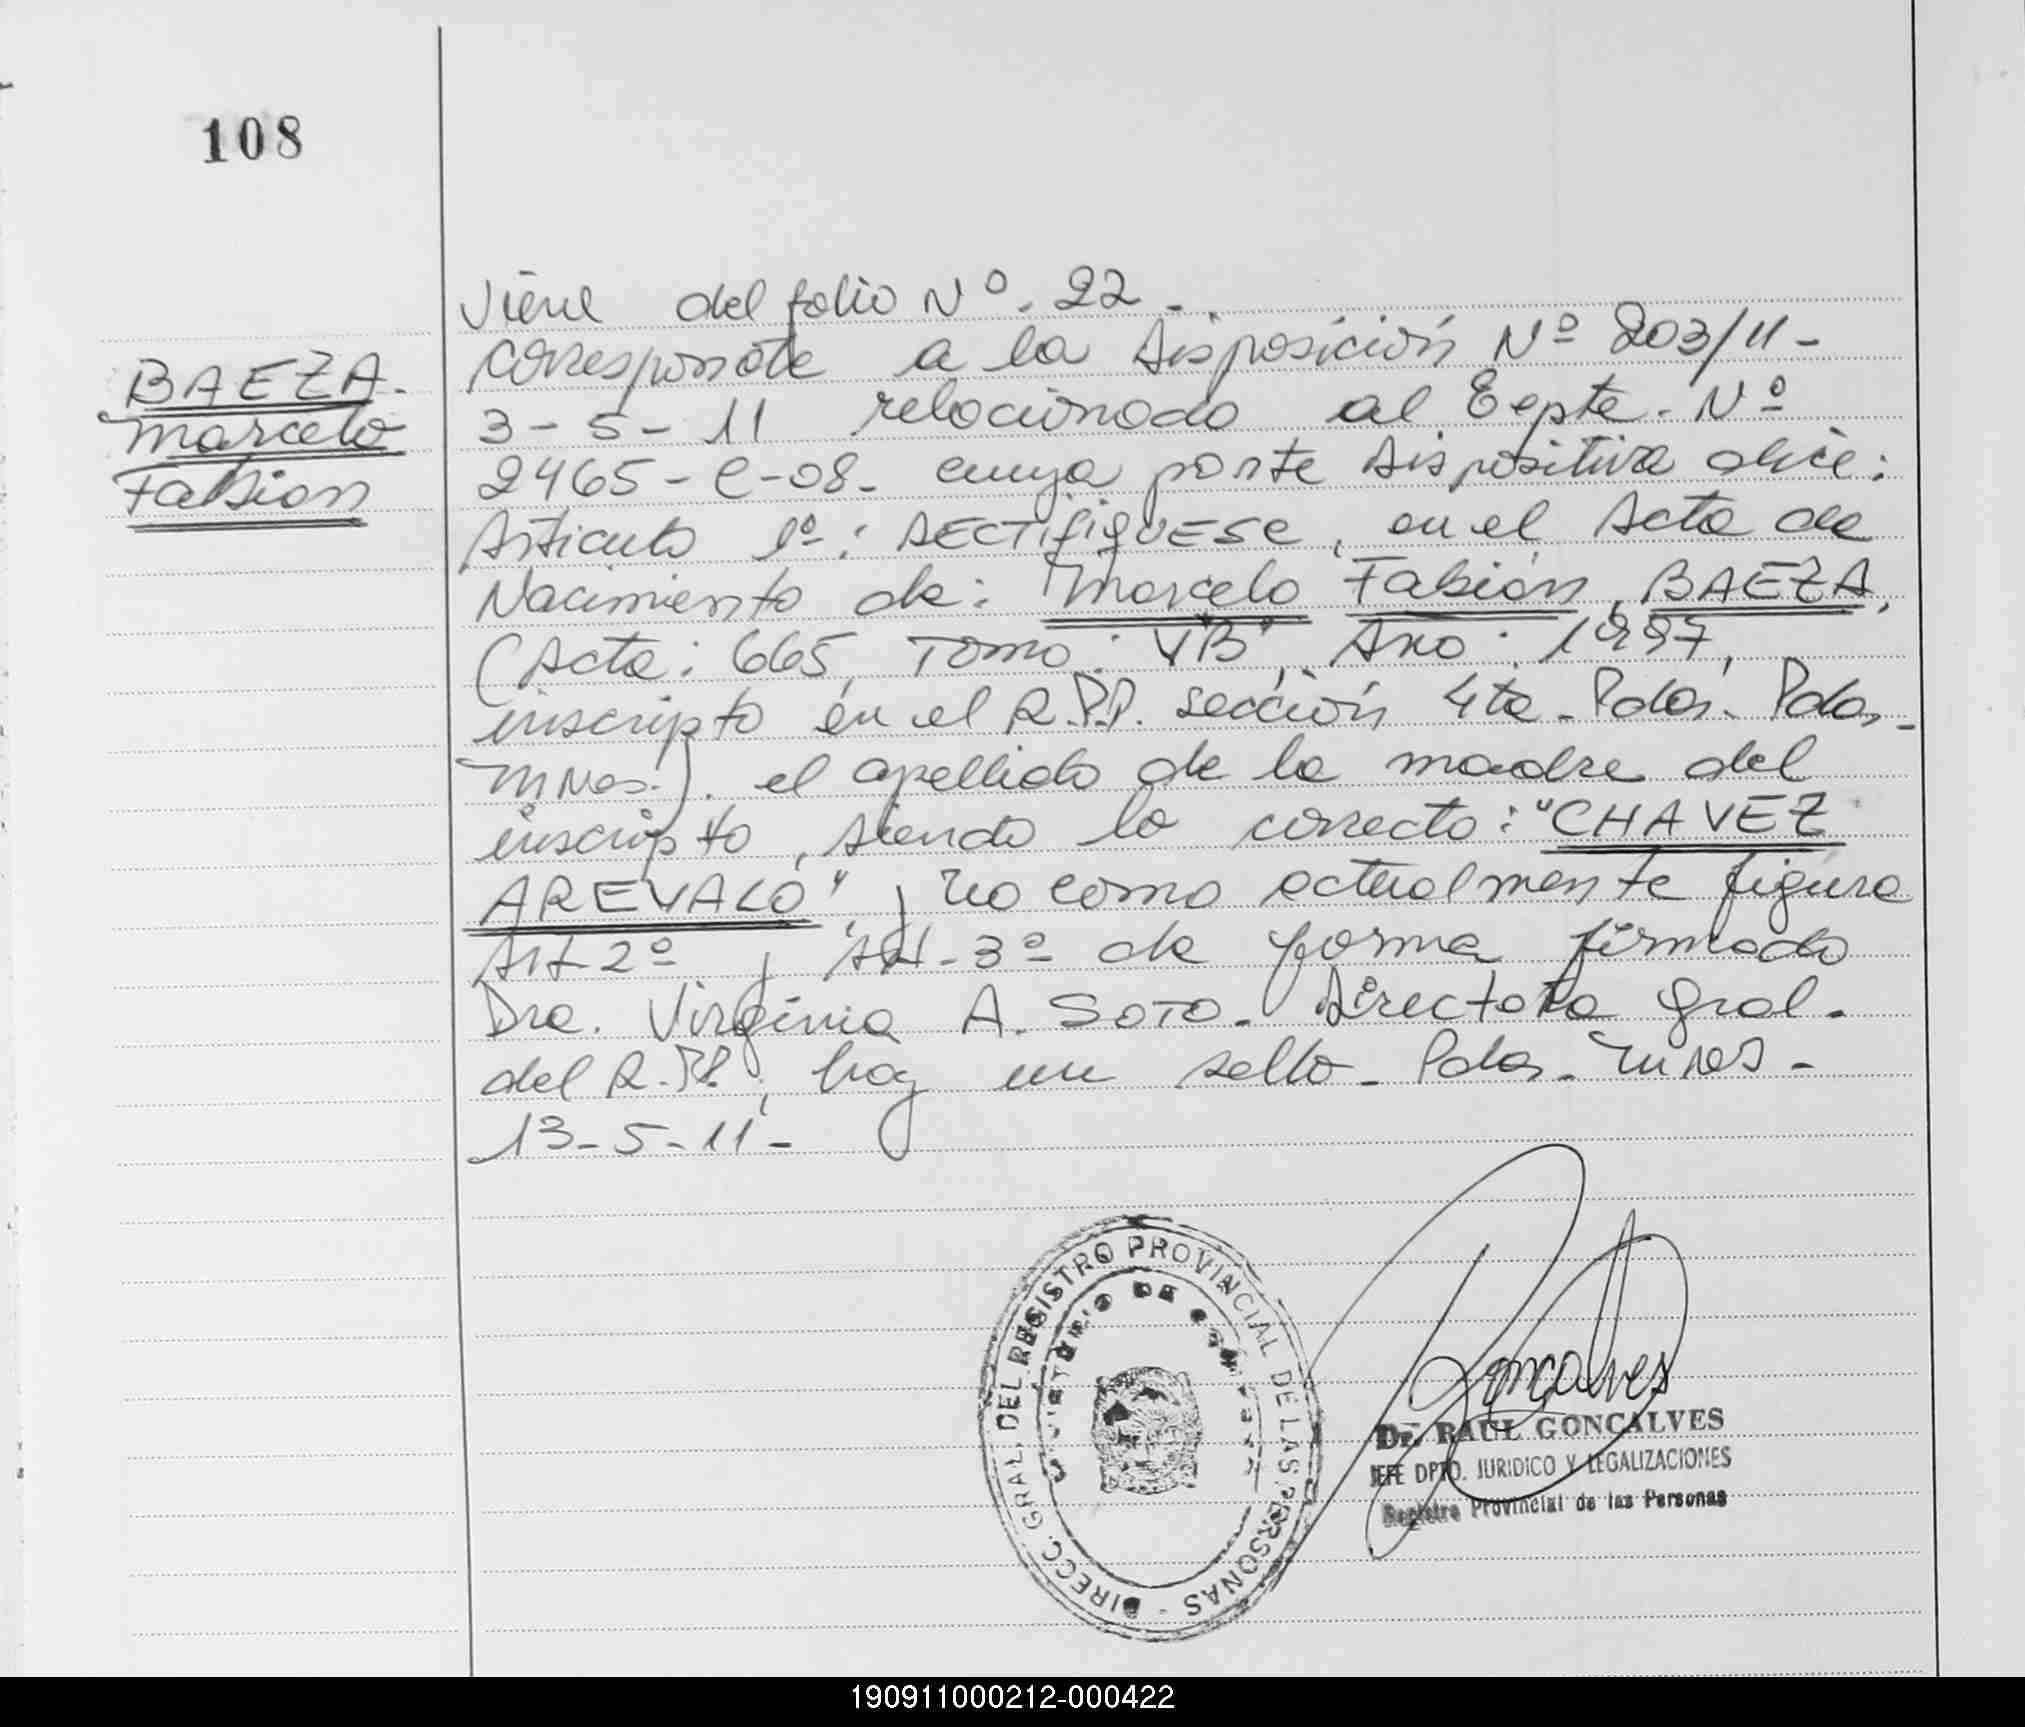 108
BAEZA.
Marcelo
Fabián
Viene del folio Nº. 22 -
corresponde a la Disposición Nº 203/11 -
3 - 5 - 11 relacionado al Expte. Nº
2465 - C - 08 - cuya parte dispositiva dice:
Articulo 1º: RECTIFIQUESE, en el Acta de
Nacimiento de: Marcelo Fabián BAEZA,
(Acta: 665, Tomo: "VB", Año: 1997,
inscripto en el R.P.P. sección 4ta - Pdas. Pdas -
MNes.). el apellido de la madre del
inscripto, siendo lo correcto: "CHAVEZ
AREVALO" y no como actualmente figura
Art 2º y Art - 3º de forma firmado
Dra. Virginia A. SOTO - Directora Gral.
del R.PP. hay un sello - Pdas. Mnes -
13 - 5 - 11 -
DIRECC. GRAL. DEL REGISTRO PROVINCIAL DE LAS PERSONAS -
MINISTERIO DE
Goncalves
Dr. RAUL GONCALVES
JEFE DPTO. JURIDICO Y LEGALIZACIONES
Registro Provincial de las Personas
190911000212-000422